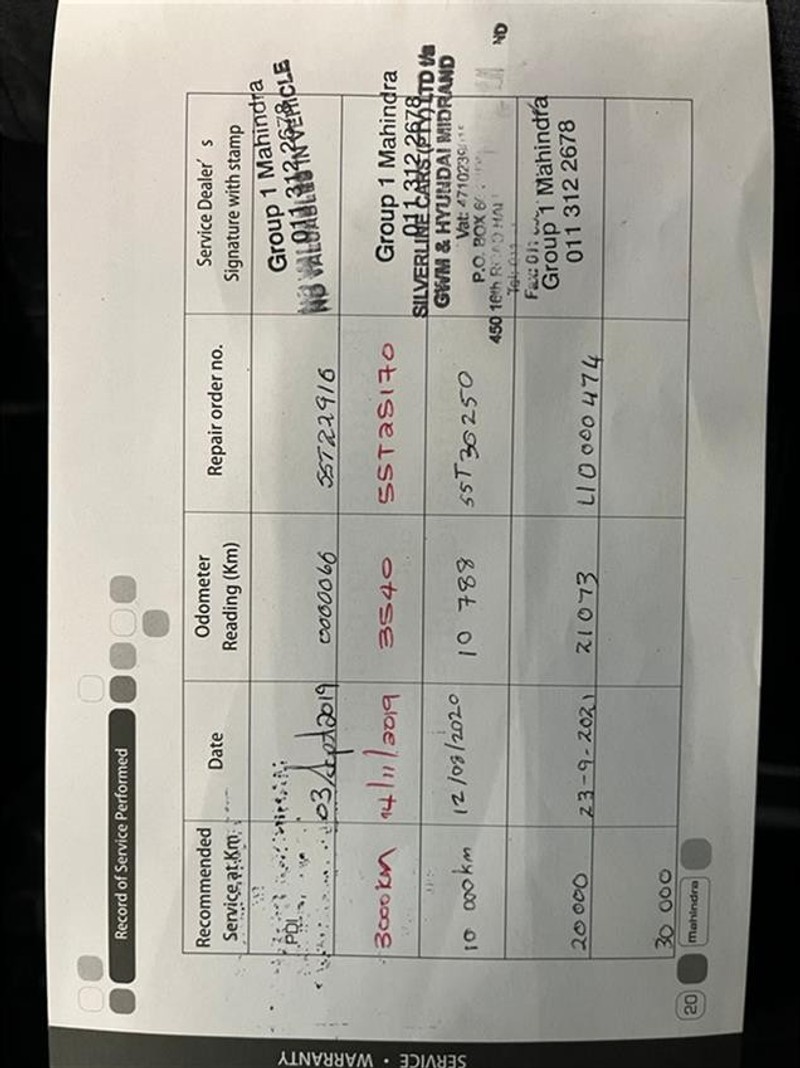 Record of Service Performed
Recommended Service at Km. Date Odometer Reading (Km) Repair order no. Service Dealer's Signature with stamp
PDI 03/Sept/2019 0000066 SST22916 Group 1 Mahindra
011 312 2678
NO VALUABLES IN VEHICLE
3000km 14/11/2019 3540 SST25170 Group 1 Mahindra
011 312 2678
SILVERLINE CARS (PTY) LTD t/a
GWM & HYUNDAI MIDRAND
10 000km 12/08/2020 10 788 SST30250
Vat: 4710239
P.O. BOX
450 16th ROAD
20000 23-9-2021 21073 L10000474 Group 1 Mahindra
011 312 2678
30 000
20 mahindra
SERVICE • WARRANTY